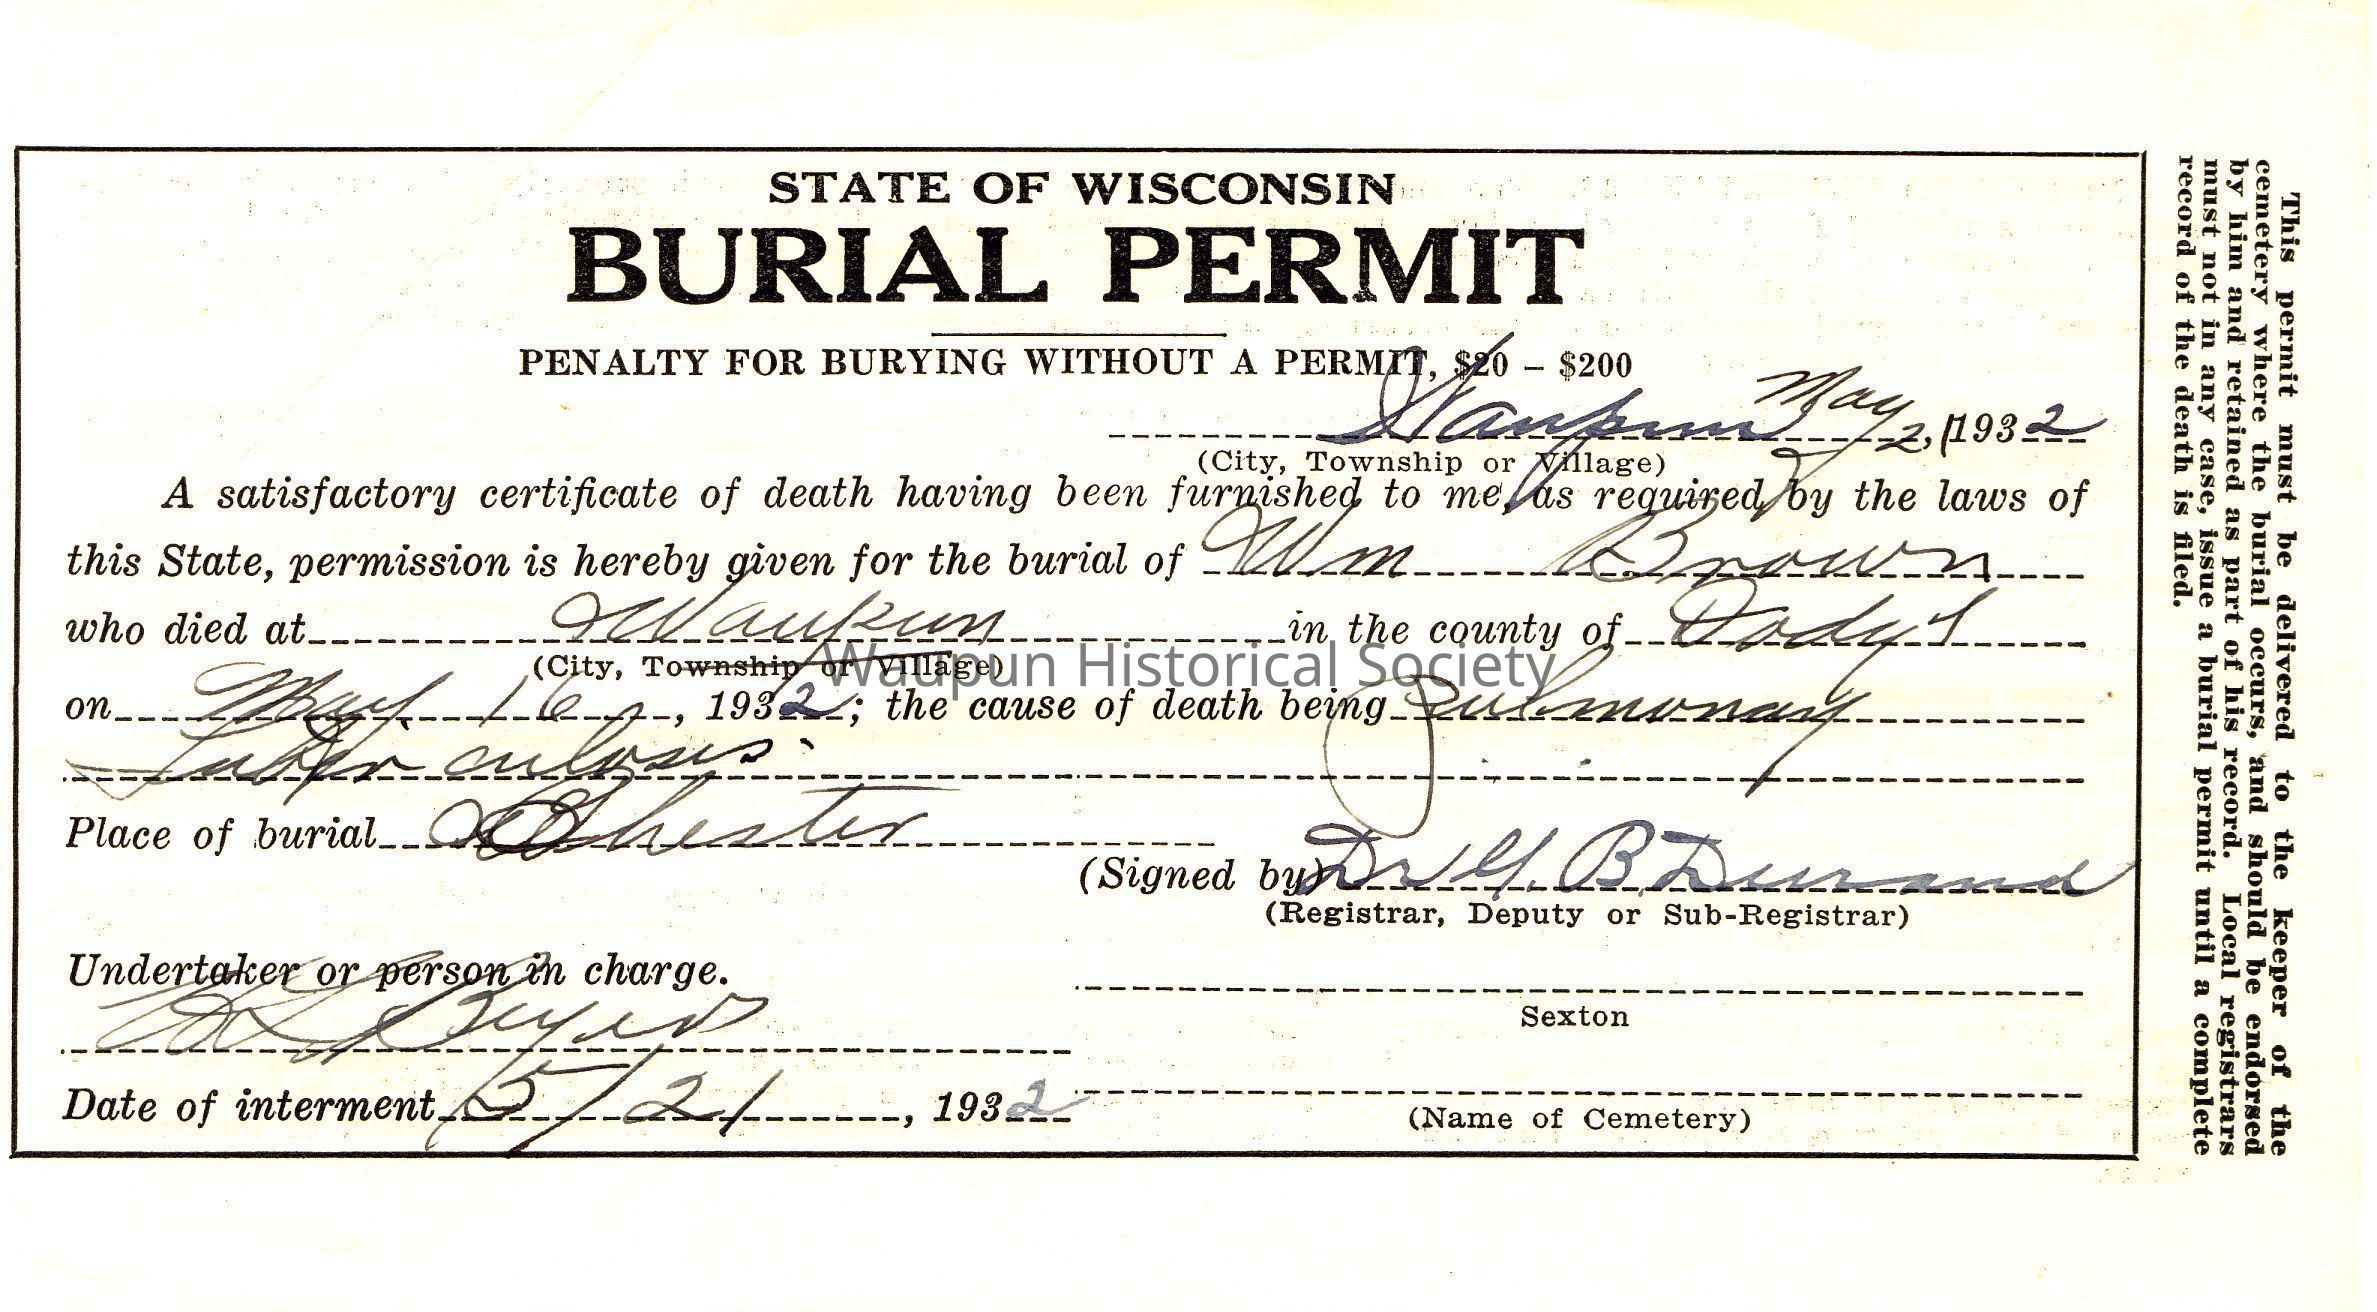 STATE OF WISCONSIN
BURIAL PERMIT
PENALTY FOR BURYING WITHOUT A PERMIT, $20 – $200
Waupun May 2, 1932
(City, Township or Village)
A satisfactory certificate of death having been furnished to me, as required by the laws of
this State, permission is hereby given for the burial of Wm Brown
who died at Waupun in the county of Dodge
(City, Township or Village)
on May 16, 1932; the cause of death being Pulmonary
Tuber culosis.
Place of burial Chester
(Signed by) Dr B Durand
(Registrar, Deputy or Sub-Registrar)
Undertaker or person in charge.
Sexton
Date of interment 5/21, 1932
(Name of Cemetery)
This permit must be delivered to the keeper of the
cemetery where the burial occurs, and should be endorsed
by him and retained as part of his record. Local registrars
must not in any case, issue a burial permit until a complete
record of the death is filed.
Waupun Historical Society